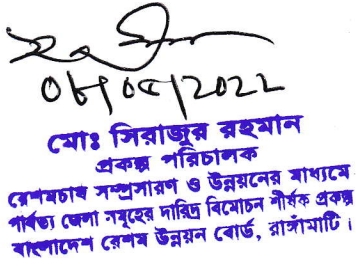 ০৮/০৫/2022
মোঃ সিরাজুর রহমান
প্রকল্প পরিচালক
রেশমচাষ সম্প্রসারণ ও উন্নয়নের মাধ্যমে
পার্বত্য জেলা সমূহের দারিদ্র বিমোচন শীর্ষক প্রকল্প
বাংলাদেশ রেশম উন্নয়ন বোর্ড, রাঙ্গামাটি।